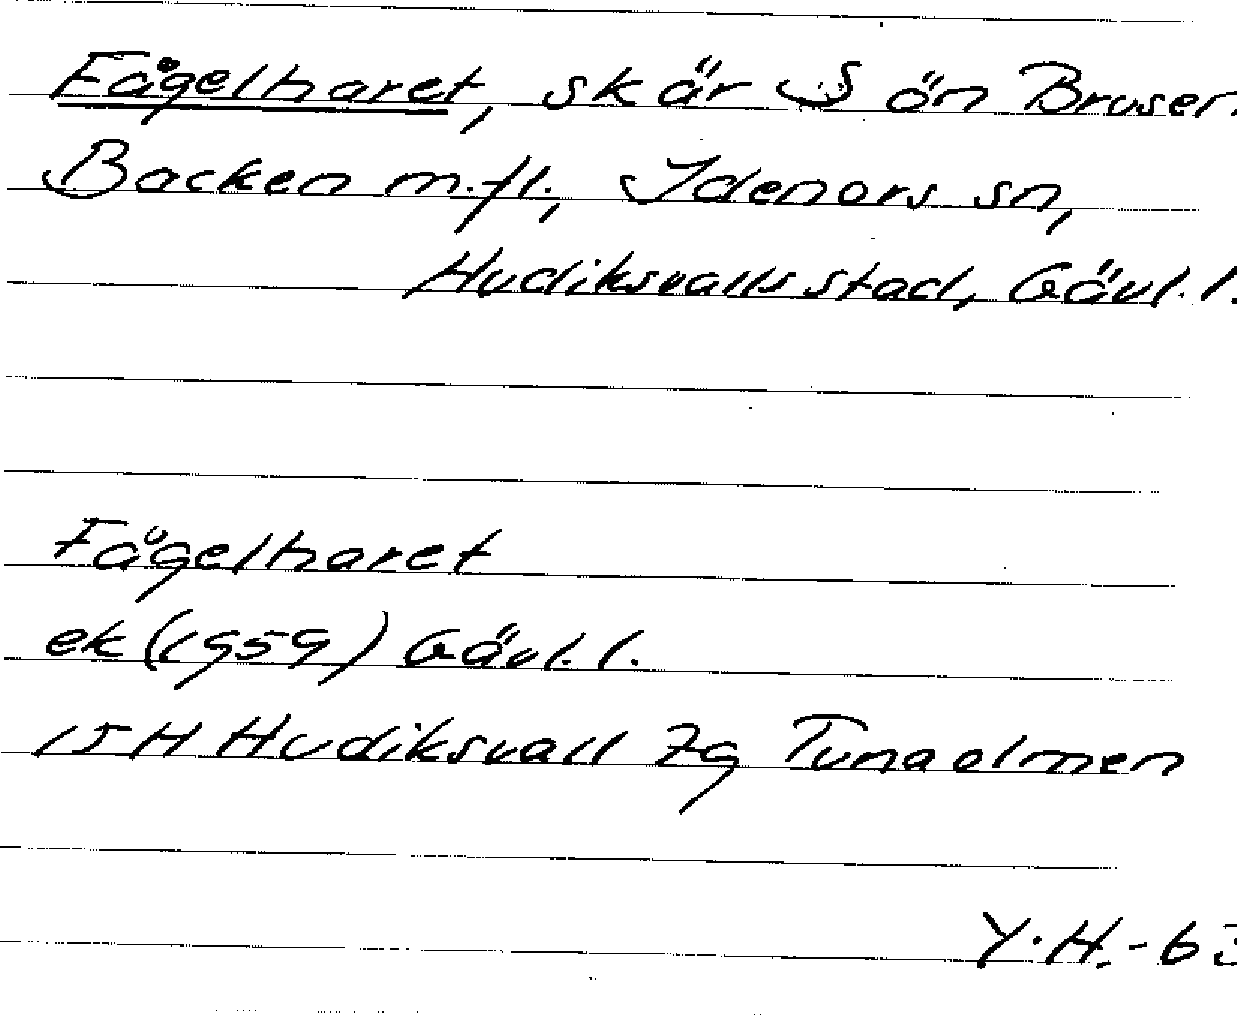 Fågelharet, skär S ön Bruser.
Backen m.fl., Idenors sn,
Hudiksvalls stad, Gävl. l.
Fågelharet
ek (1959) Gävl. l.
15H Hudiksvall 7g Tunaolmen
Y.H.-63